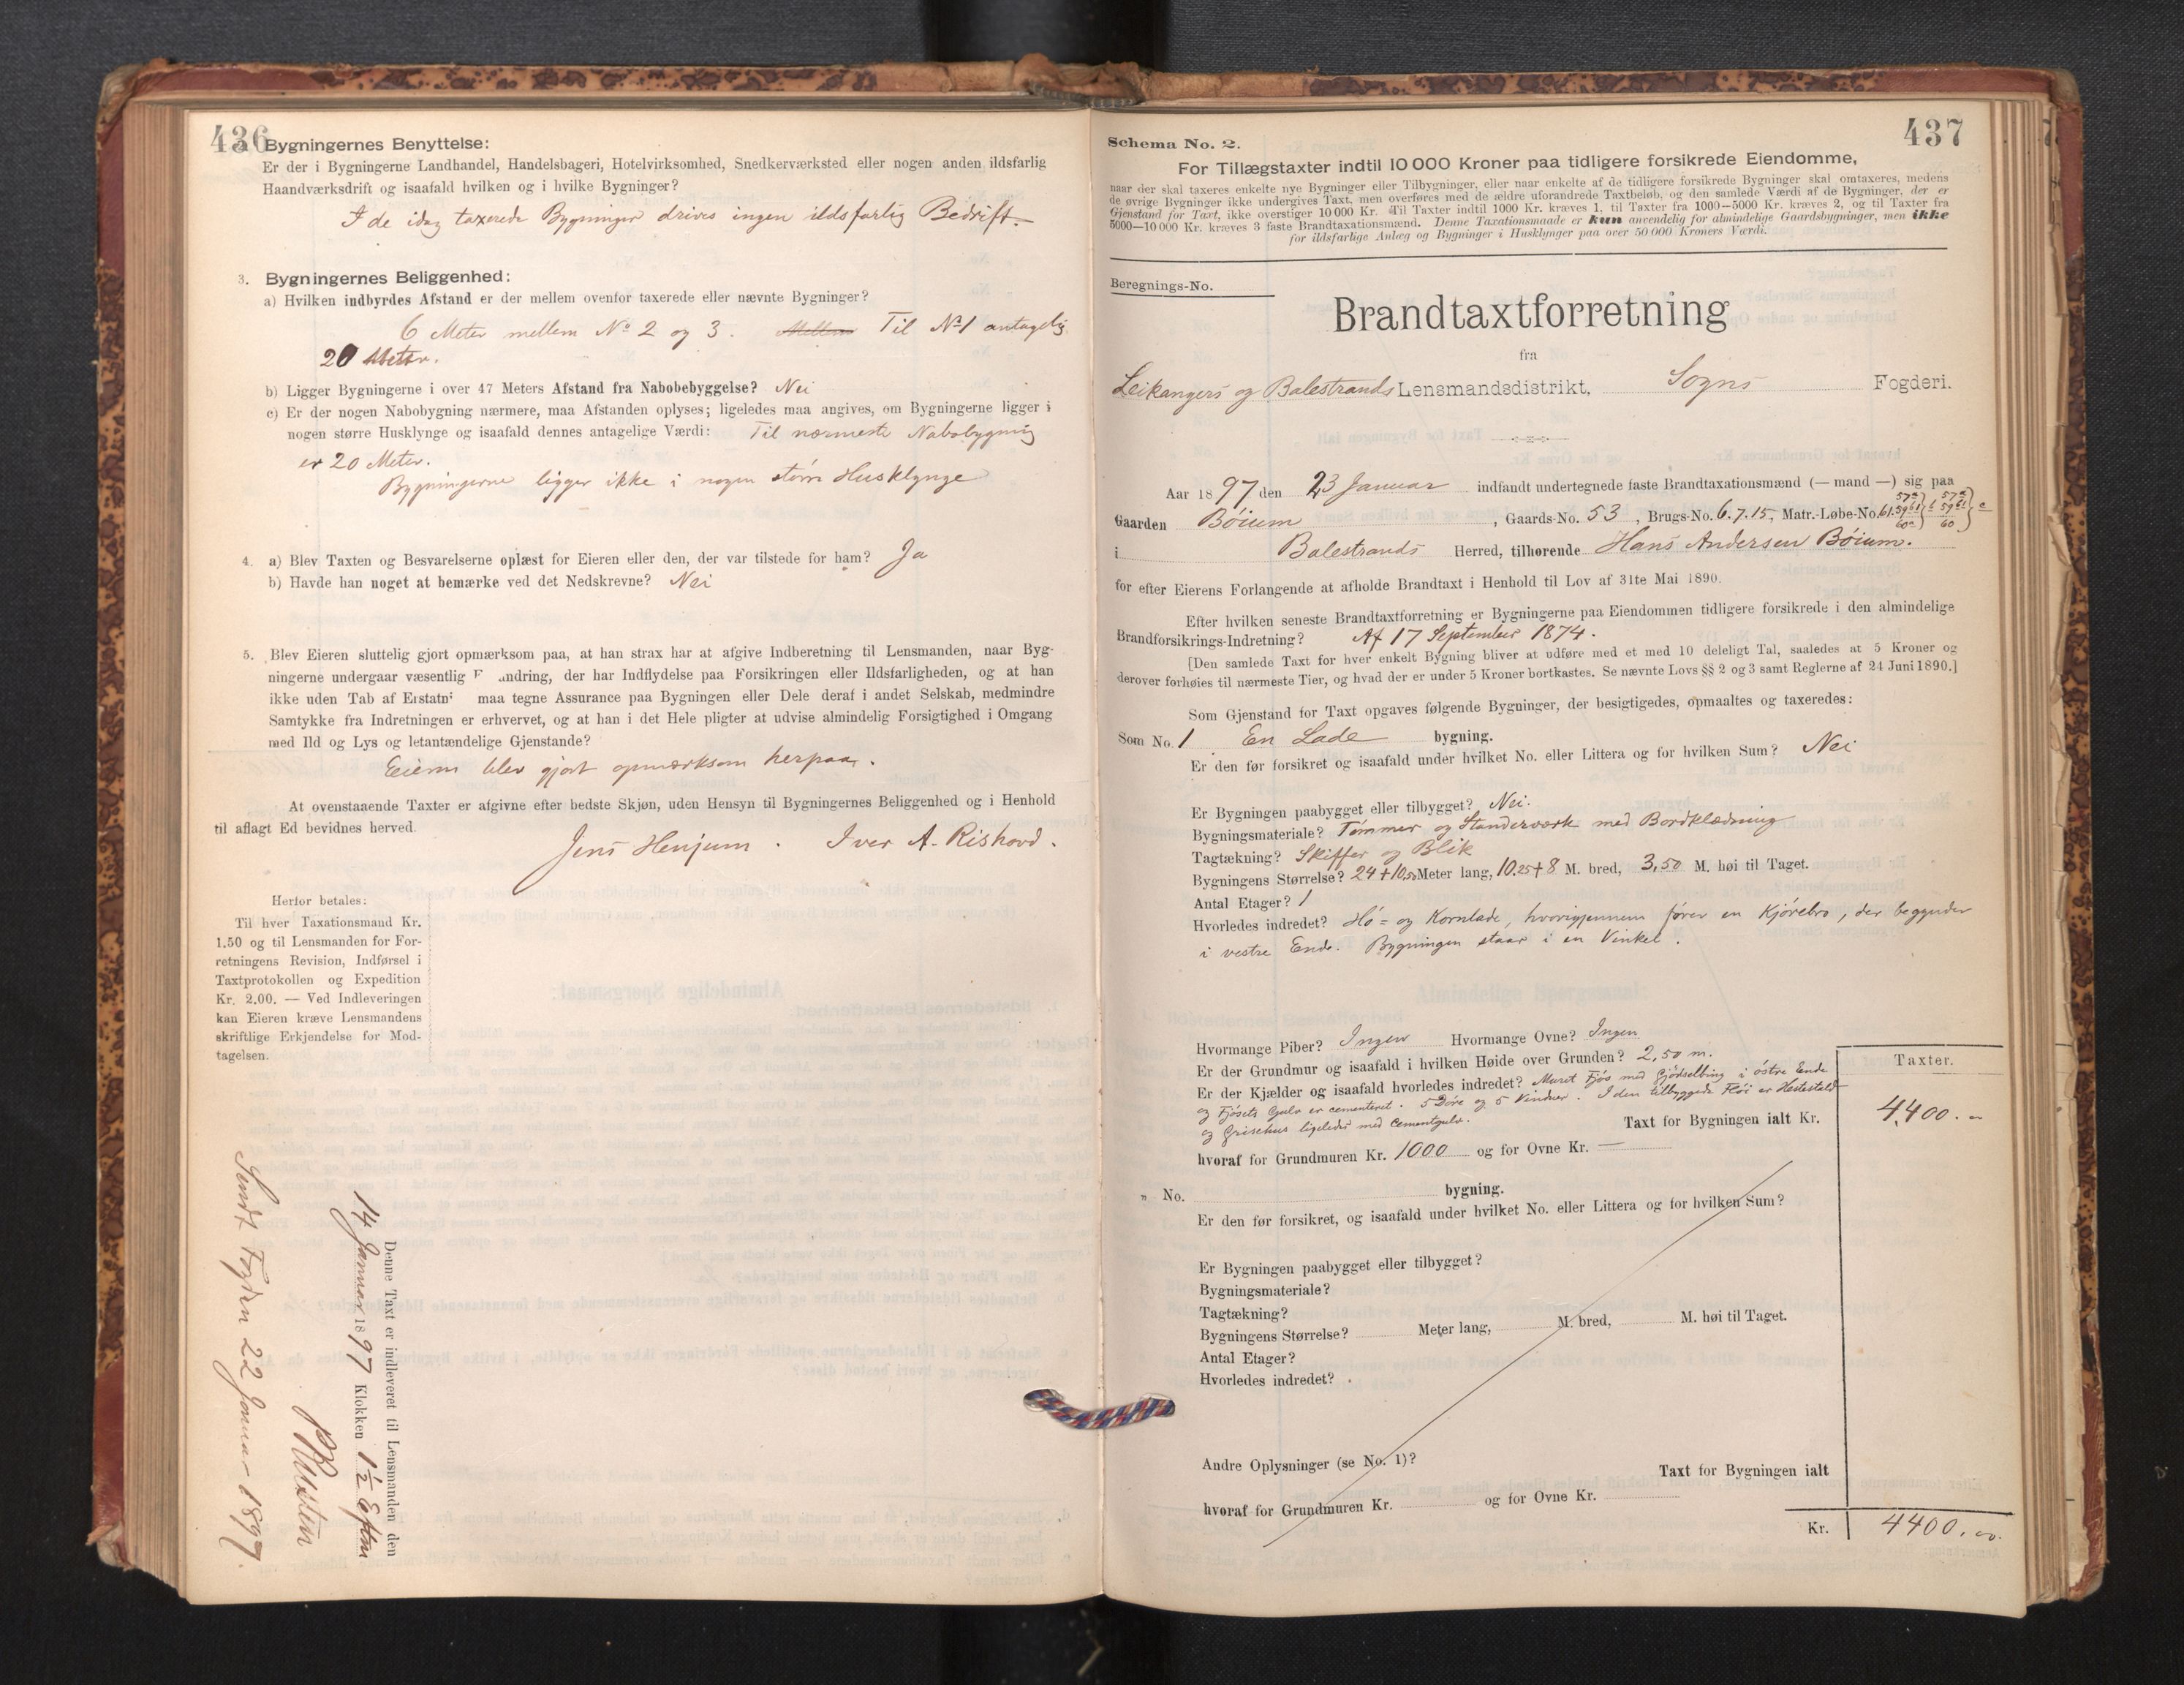 436
Bygningernes Benyttelse:
Er der i Bygningerne Landhandel, Handelsbageri, Hotelvirksomhed, Snedkerværksted eller nogen anden ildsfarlig
Haandværksdrift og isaafald hvilken og i hvilke Bygninger?
I de idag taxerede Bygninger drives ingen ildsfarlig Bedrift.
3. Bygningernes Beliggenhed:
a) Hvilken indbyrdes Afstand er der mellem ovenfor taxerede eller nævnte Bygninger?
6 Meter mellem No 2 og 3. Mellem Til No 1 antagelig
20 Meter.
b) Ligger Bygningerne i over 47 Meters Afstand fra Nabobebyggelse? Nei
c) Er der nogen Nabobygning nærmere, maa Afstanden oplyses; ligeledes maa angives, om Bygningerne ligger i
nogen større Husklynge og isaafald dennes antagelige Værdi: Til nærmeste Nabobygning
er 20 Meter.
Bygningerne ligger ikke i nogen større Husklynge
4. a) Blev Taxten og Besvarelserne oplæst for Eieren eller den, der var tilstede for ham? Ja
b) Havde han noget at bemærke ved det Nedskrevne? Nei
5. Blev Eieren sluttelig gjort opmærksom paa, at han strax har at afgive Indberetning til Lensmanden, naar Byg-
ningerne undergaar væsentlig F andring, der har Indflydelse paa Forsikringen eller Ildsfarligheden, og at han
ikke uden Tab af Erstatn maa tegne Assurance paa Bygningen eller Dele deraf i andet Selskab, medmindre
Samtykke fra Indretningen er erhvervet, og at han i det Hele pligter at udvise almindelig Forsigtighed i Omgang
med Ild og Lys og letantændelige Gjenstande?
Eieren blev gjort opmærksom herpaa.
At ovenstaaende Taxter er afgivne efter bedste Skjøn, uden Hensyn til Bygningernes Beliggenhed og i Henhold
til aflagt Ed bevidnes herved.
Jens Henjum. Iver A. Rishovd.
Herfor betales:
Til hver Taxationsmand Kr.
1.50 og til Lensmanden for For-
retningens Revision, Indførsel i
Taxtprotokollen og Expedition
Kr. 2.00. — Ved Indleveringen
kan Eieren kræve Lensmandens
skriftlige Erkjendelse for Mod-
tagelsen.
Denne Taxt er indleveret til Lensmanden den
14 Januar 1897 Klokken 1½ Eftm
Sendt Fogden 22 Januar 1897.
437
Schema No. 2.
For Tillægstaxter indtil 10 000 Kroner paa tidligere forsikrede Eiendomme,
naar der skal taxeres enkelte nye Bygninger eller Tilbygninger, eller naar enkelte af de tidligere forsikrede Bygninger skal omtaxeres, medens
de øvrige Bygninger ikke undergives Taxt, men overføres med de ældre uforandrede Taxtbeløb, og den samlede Værdi af de Bygninger, der er
Gjenstand for Taxt, ikke overstiger 10 000 Kr. Til Taxter indtil 1000 Kr. kræves 1, til Taxter fra 1000—5000 Kr. kræves 2, og til Taxter fra
5000—10 000 Kr. kræves 3 faste Brandtaxationsmænd. Denne Taxationsmaade er kun anvendelig for almindelige Gaardsbygninger, men ikke
for ildsfarlige Anlæg og Bygninger i Husklynger paa over 50 000 Kroners Værdi.
Beregnings-No.
Brandtaxtforretning
fra
Leikangers og Balestrands Lensmandsdistrikt, Sogns Fogderi.
Aar 1897 den 23 Januar indfandt undertegnede faste Brandtaxationsmænd (— mand —) sig paa
Gaarden Böium, Gaards-No. 53, Brugs-No. 6. 7. 15, Matr.-Løbe-No. 61.
i Balestrands Herred, tilhørende Hans Andersen Böium.
for efter Eierens Forlangende at afholde Brandtaxt i Henhold til Lov af 31te Mai 1890.
Efter hvilken seneste Brandtaxtforretning er Bygningerne paa Eiendommen tidligere forsikrede i den almindelige
Brandforsikrings-Indretning? Af 17 September 1874.
[Den samlede Taxt for hver enkelt Bygning bliver at udføre med et med 10 deleligt Tal, saaledes at 5 Kroner og
derover forhøies til nærmeste Tier, og hvad der er under 5 Kroner bortkastes. Se nævnte Lovs §§ 2 og 3 samt Reglerne af 24 Juni 1890.]
Som Gjenstand for Taxt opgaves følgende Bygninger, der besigtigedes, opmaaltes og taxeredes:
Som No. 1 En Lade bygning.
Er den før forsikret og isaafald under hvilket No. eller Littera og for hvilken Sum? Nei
Er Bygningen paabygget eller tilbygget? Nei.
Bygningsmateriale? Tømmer og Standerværk med Bordklædning
Tagtækning? Skiffer og Blik
Bygningens Størrelse? 24 + 10,50 Meter lang, 10.25 + 8 M. bred, 3,50 M. høi til Taget.
Antal Etager? 1
Hvorledes indredet? Hö- og Kornlade, hvorigjennem fører en Kjörebro, der begynder
i vestre Ende. Bygningen staar i en Vinkel.
Hvormange Piber? Ingen Hvormange Ovne? Ingen
Er der Grundmur og isaafald i hvilken Høide over Grunden? 2,50 m.
Er der Kjælder og isaafald hvorledes indredet? Muret Fjös med Gjödselbing i östre Ende
og Fjösets Gulv er cementeret. 5 Döre og 5 Vinduer. I den tilbyggede Flöi er Hestestald
og Grisehus ligeledes med Cementgulv.
Taxter.
Taxt for Bygningen ialt Kr. 4,400.
hvoraf for Grundmuren Kr. 1000 og for Ovne Kr. —
„ No. bygning.
Er den før forsikret, og isaafald under hvilket No. eller Littera og for hvilken Sum?
Er Bygningen paabygget eller tilbygget?
Bygningsmateriale?
Tagtækning?
Bygningens Størrelse? Meter lang, M. bred, M. høi til Taget.
Antal Etager?
Hvorledes indredet?
Andre Oplysninger (se No. 1)?
Taxt for Bygningen ialt
hvoraf for Grundmuren Kr. og for Ovne Kr.
Kr. 4400.